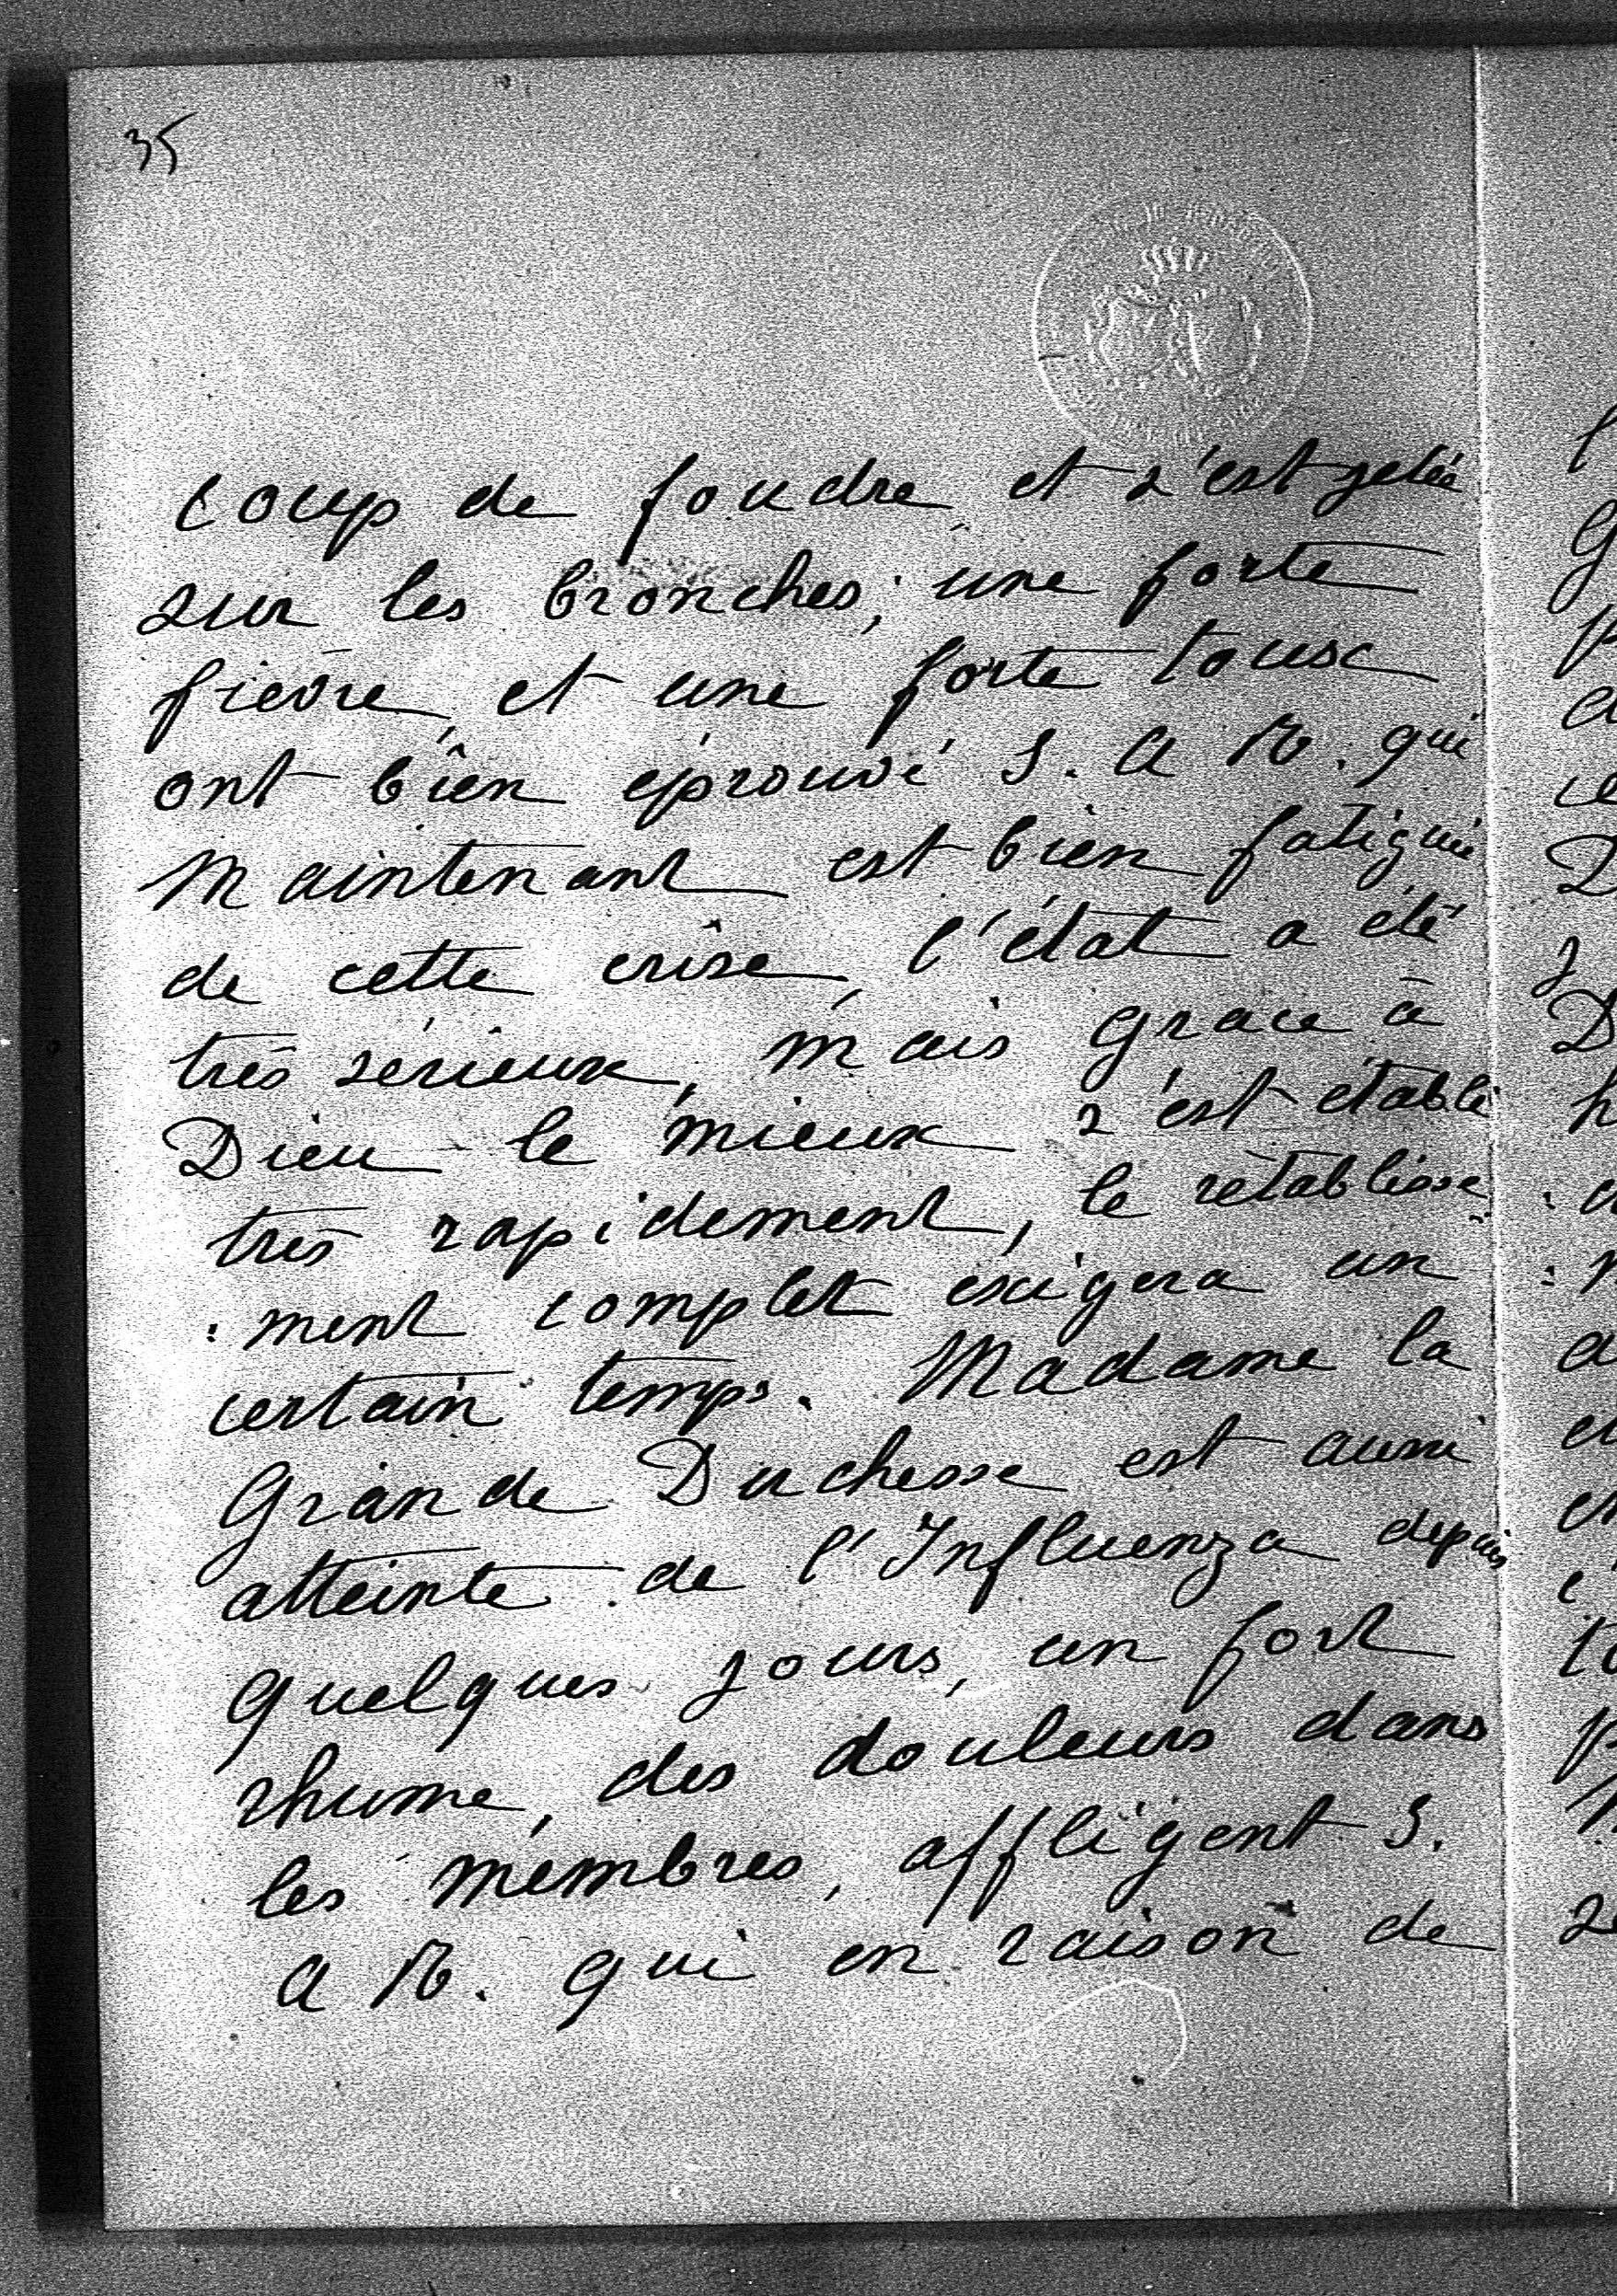 35
coup de foudre, et s'est jetée
sur les bronches; une forte
fièvre, et une forte toux
ont bien éprouvé S. A R. qui
maintenant est bien fatiguée
de cette crise, l'état a été
très sérieux, mais grace à
Dieu le mieux s'est établi
très rapidement, le rétablisse:
:ment complet exigera un
certain temps. Madame la
Grande Duchesse est aussi
atteinte de l'Influenza depuis
quelques jours, un fort
rhume, des douleurs dans
les membres, affligent S.
A R. qui en raison de